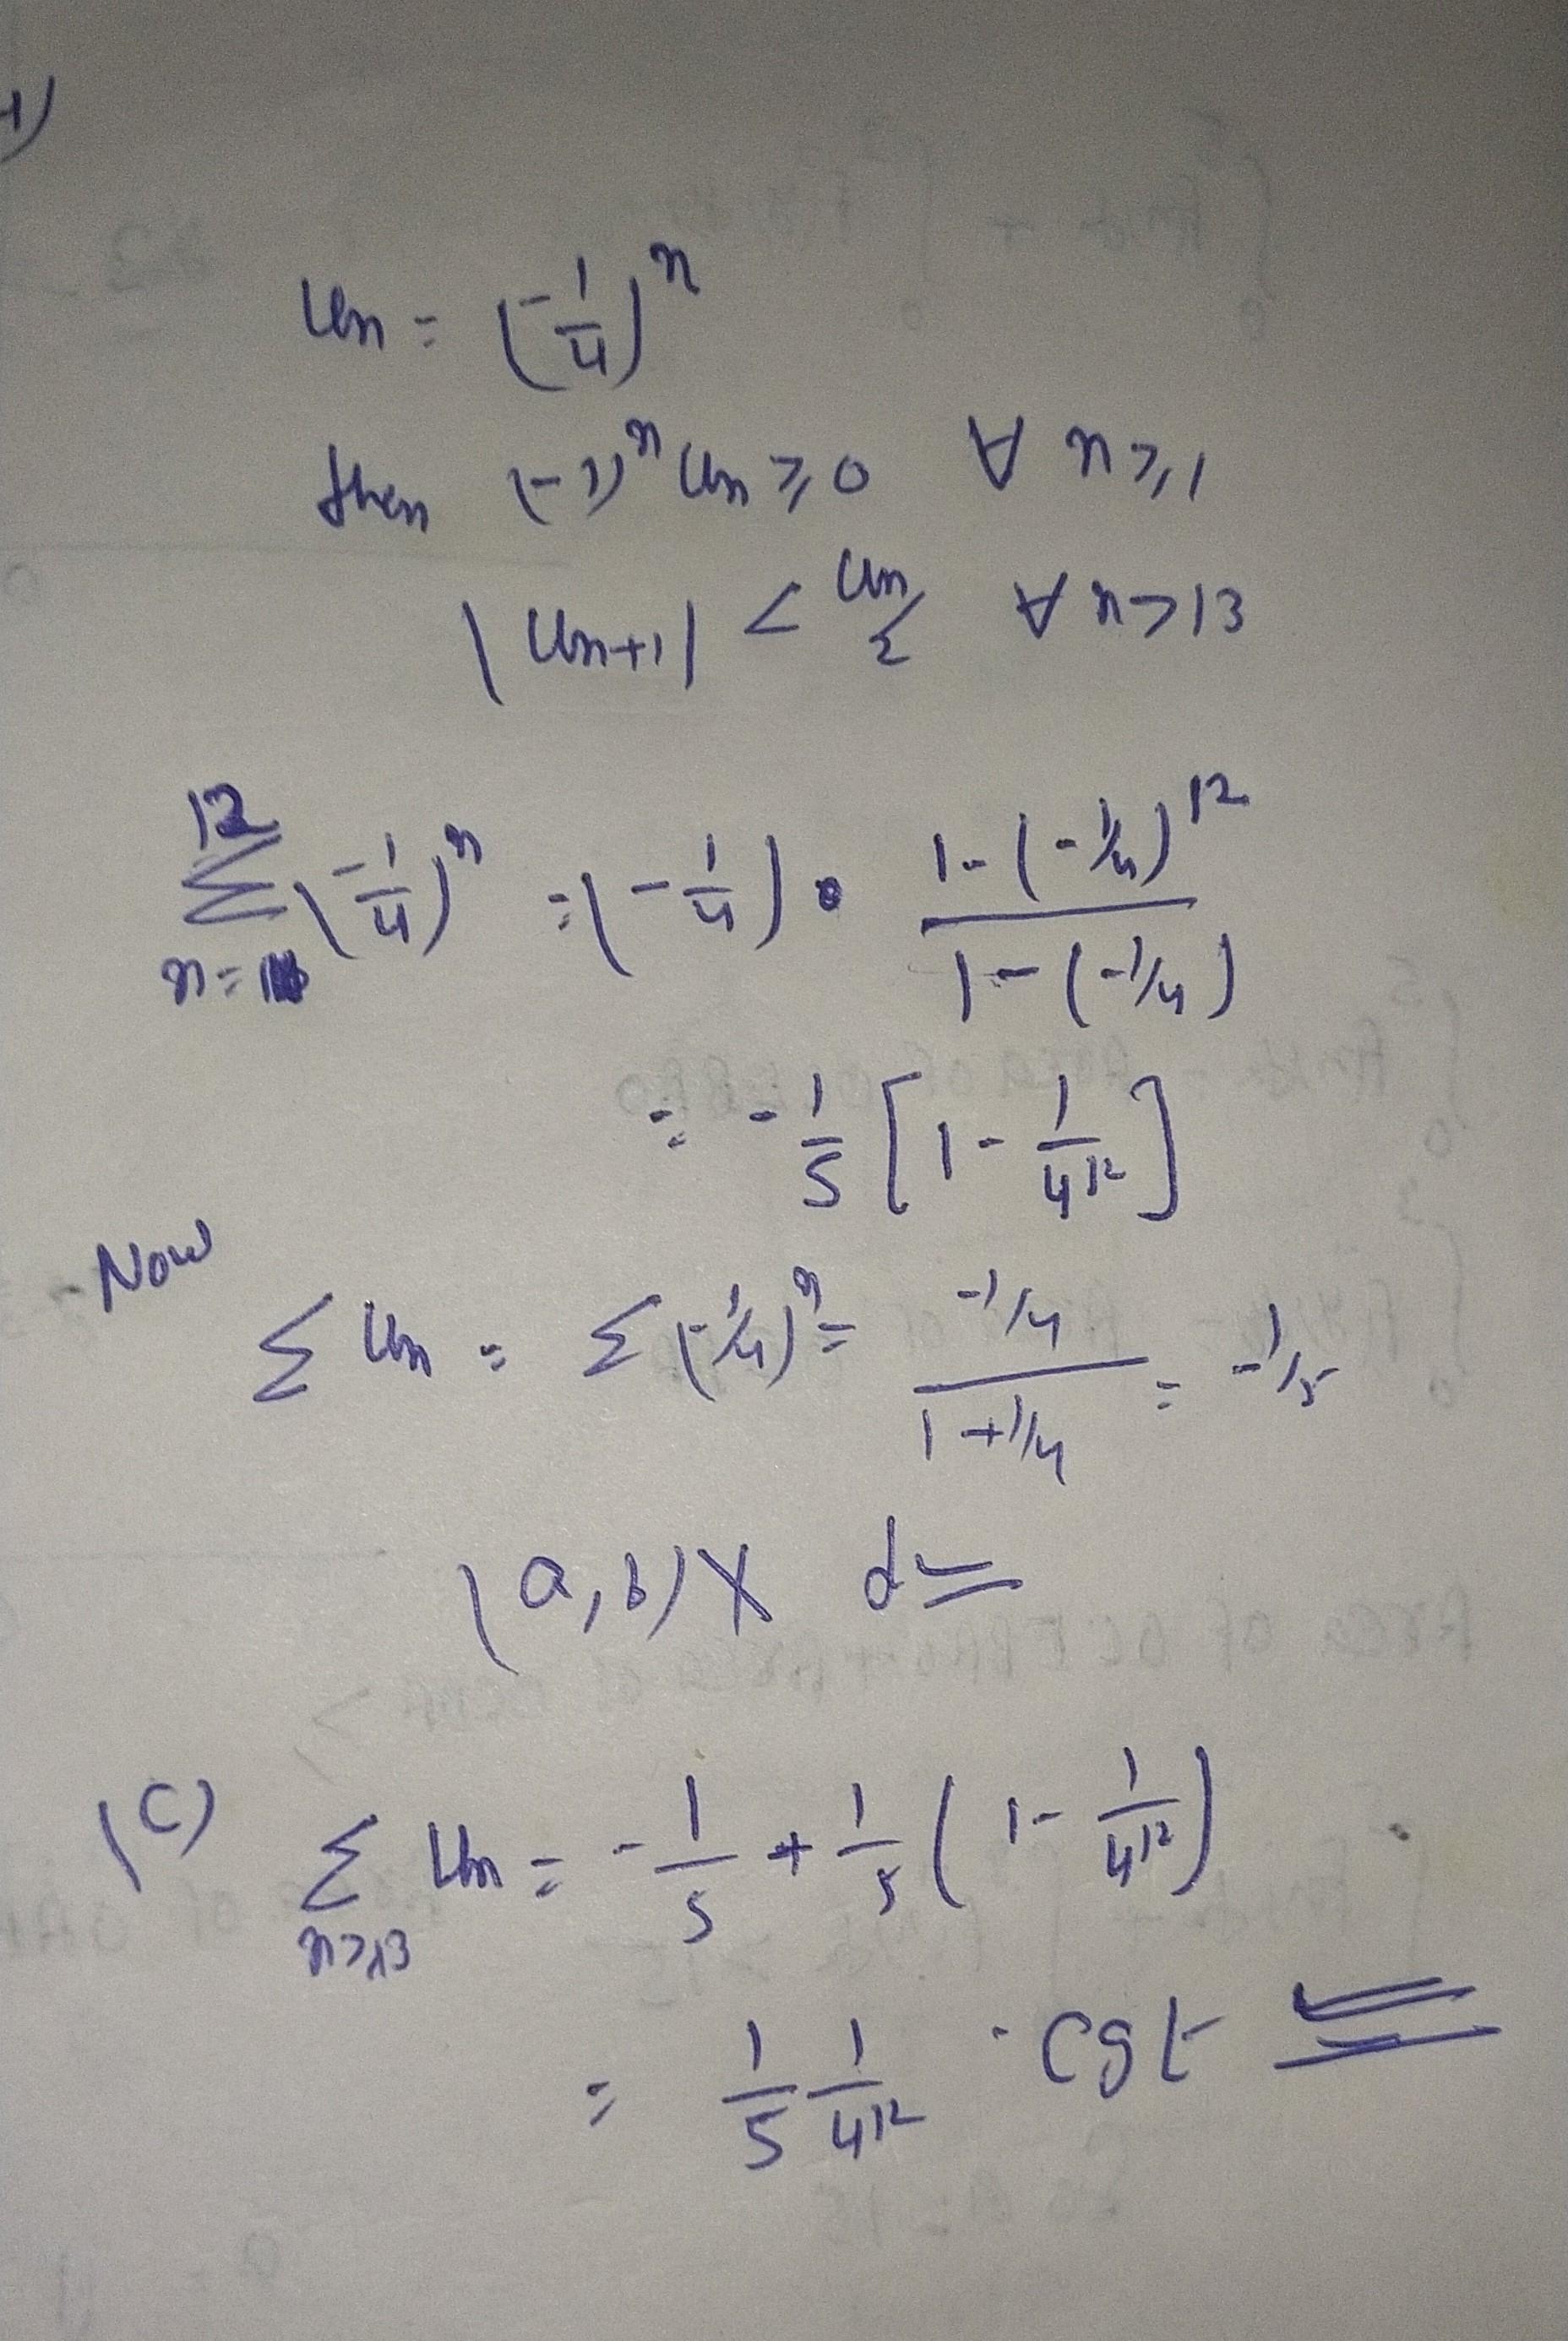 1)
Un = (-1/4)^n
then (-1)^n Un ≥ 0 ∀ n ≥ 1
|Un+1| < Un/2 ∀ n > 13
12 Σ n=1 (-1/4)^n = (-1/4) · 1-(-1/4)^12 / 1-(-1/4)
= -1/5 [1 - 1/4^12]
Now
Σ Un = Σ (-1/4)^n = -1/4 / 1+1/4 = -1/5
(a,b) X d
(C) Σ n≥13 Un = -1/5 + 1/5 (1 - 1/4^12)
= 1/5 1/4^12 · cgt